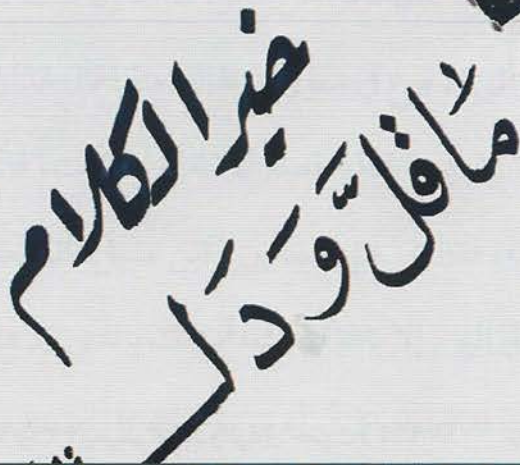 خير الكلام
مَا قلَّ وَدَل